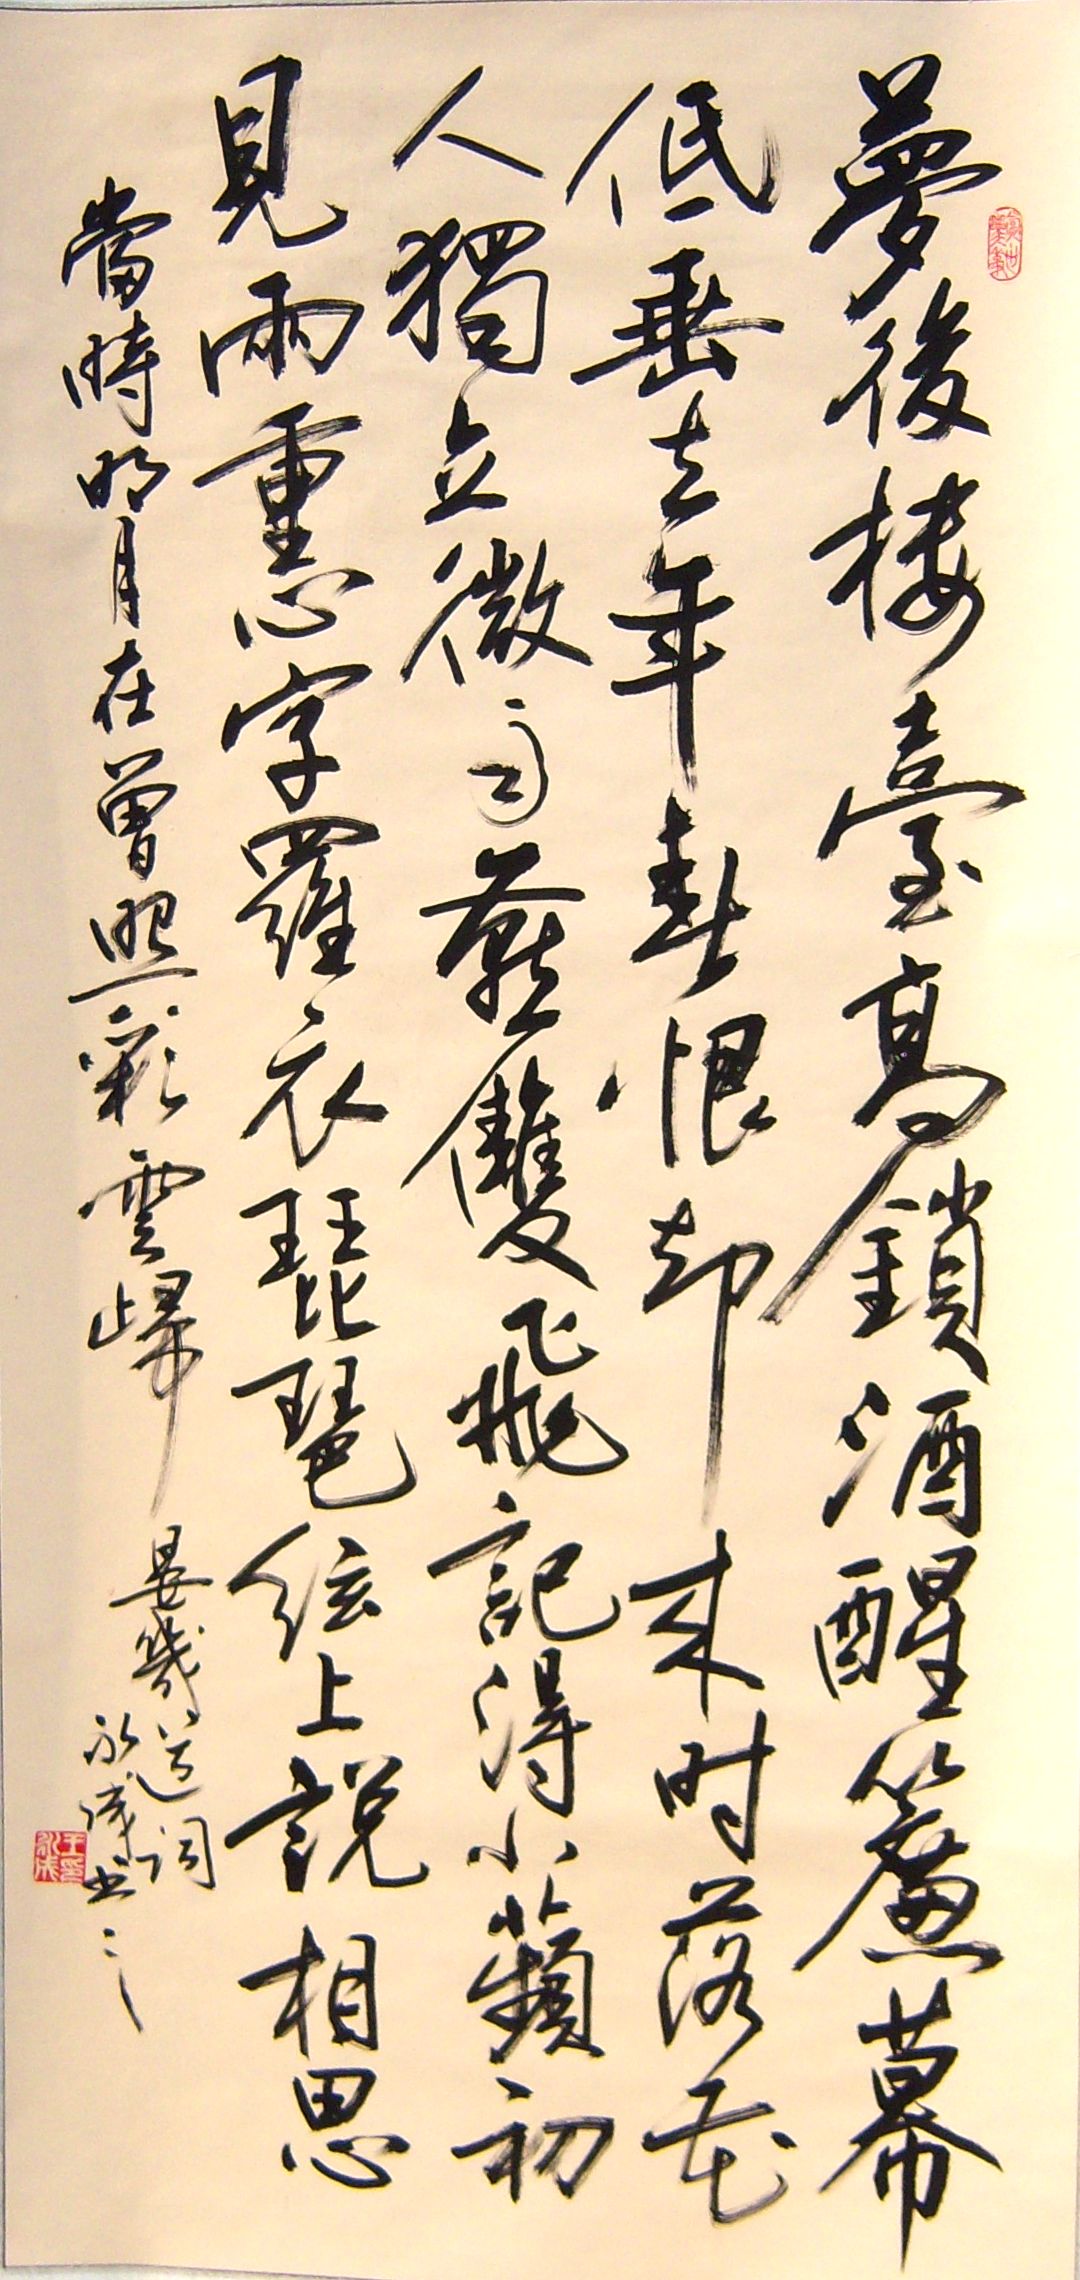 夢後楼臺高鎖酒醒簾幕
低垂去年春恨却来时落花
人獨立微雨燕雙飛記得小蘋初
見兩重心字羅衣琵琶絃上說相思
當時明月在曾照彩雲歸
晏幾道词
永成书
王印永成